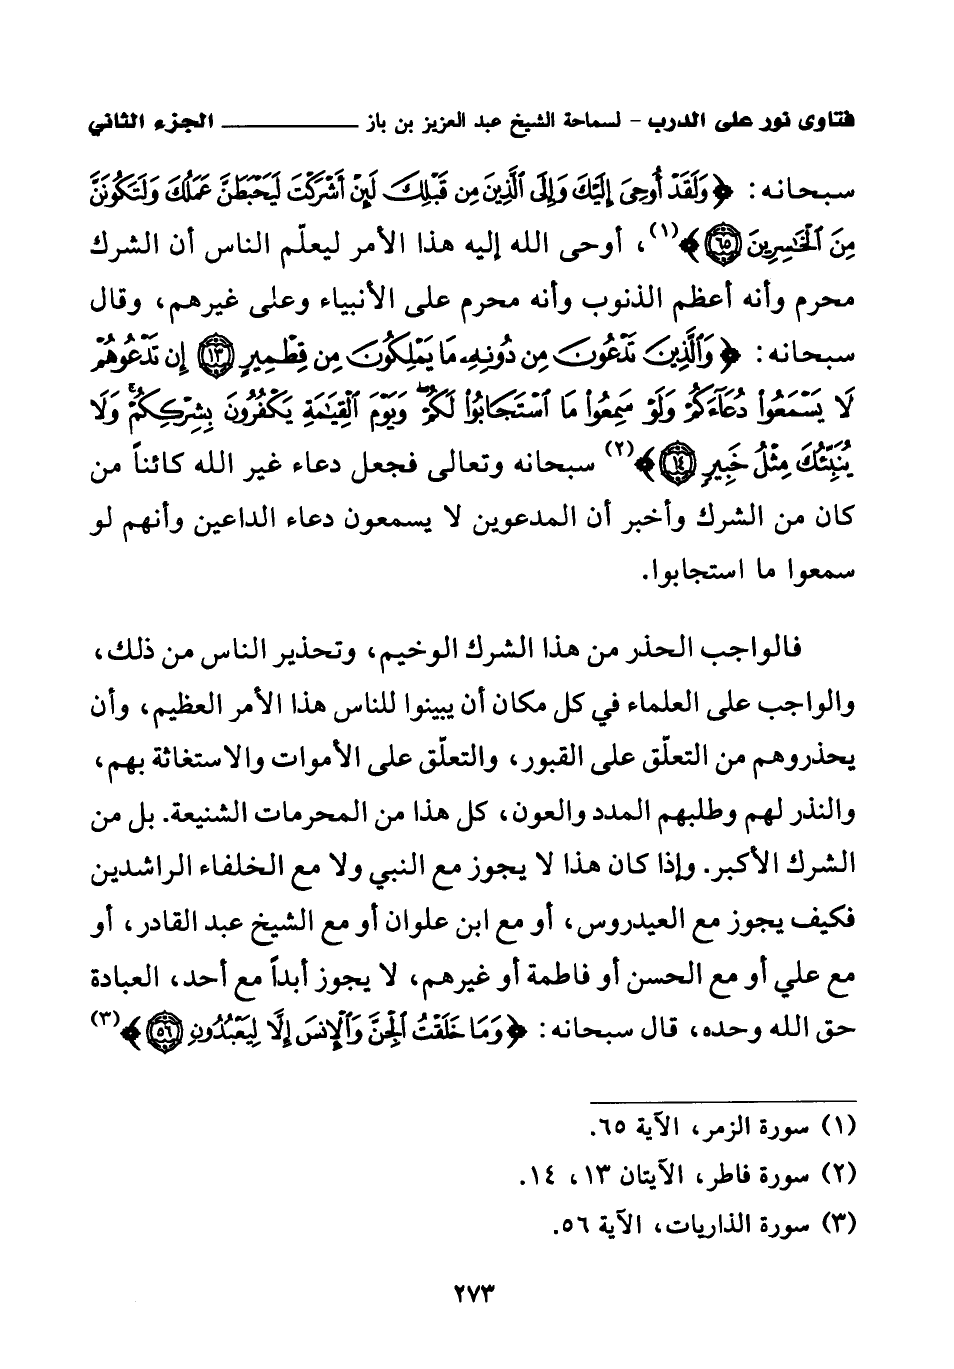 فتاوى نور على الدرب - لسماحة الشيخ عبد العزيز بن باز ــــــــــــــــــ الجزء الثاني
سبحانه: ﴿وَلَقَدْ أُوحِىَ إِلَيْكَ وَإِلَى ٱلَّذِينَ مِن قَبْلِكَ لَئِنْ أَشْرَكْتَ لَيَحْبَطَنَّ عَمَلُكَ وَلَتَكُونَنَّ
مِنَ ٱلْخَٰسِرِينَ ٦٥﴾(١)، أوحى الله إليه هذا الأمر ليعلّم الناس أن الشرك
محرم وأنه أعظم الذنوب وأنه محرم على الأنبياء وعلى غيرهم، وقال
سبحانه: ﴿وَٱلَّذِينَ تَدْعُونَ مِن دُونِهِۦ مَا يَمْلِكُونَ مِن قِطْمِيرٍ ١٣ إِن تَدْعُوهُمْ
لَا يَسْمَعُوا۟ دُعَآءَكُمْ وَلَوْ سَمِعُوا۟ مَا ٱسْتَجَابُوا۟ لَكُمْ ۖ وَيَوْمَ ٱلْقِيَٰمَةِ يَكْفُرُونَ بِشِرْكِكُمْ ۚ وَلَا
يُنَبِّئُكَ مِثْلُ خَبِيرٍ ١٤﴾(٢) سبحانه وتعالى فجعل دعاء غير الله كائناً من
كان من الشرك وأخبر أن المدعوين لا يسمعون دعاء الداعين وأنهم لو
سمعوا ما استجابوا.
فالواجب الحذر من هذا الشرك الوخيم، وتحذير الناس من ذلك،
والواجب على العلماء في كل مكان أن يبينوا للناس هذا الأمر العظيم، وأن
يحذروهم من التعلّق على القبور، والتعلّق على الأموات والاستغاثة بهم،
والنذر لهم وطلبهم المدد والعون، كل هذا من المحرمات الشنيعة. بل من
الشرك الأكبر. وإذا كان هذا لا يجوز مع النبي ولا مع الخلفاء الراشدين
فكيف يجوز مع العيدروس، أو مع ابن علوان أو مع الشيخ عبد القادر، أو
مع علي أو مع الحسن أو فاطمة أو غيرهم، لا يجوز أبداً مع أحد، العبادة
حق الله وحده، قال سبحانه: ﴿وَمَا خَلَقْتُ ٱلْجِنَّ وَٱلْإِنسَ إِلَّا لِيَعْبُدُونِ ٥٦﴾(٣)
(١) سورة الزمر، الآية ٦٥.
(٢) سورة فاطر، الآيتان ١٣، ١٤.
(٣) سورة الذاريات، الآية ٥٦.
٢٧٣